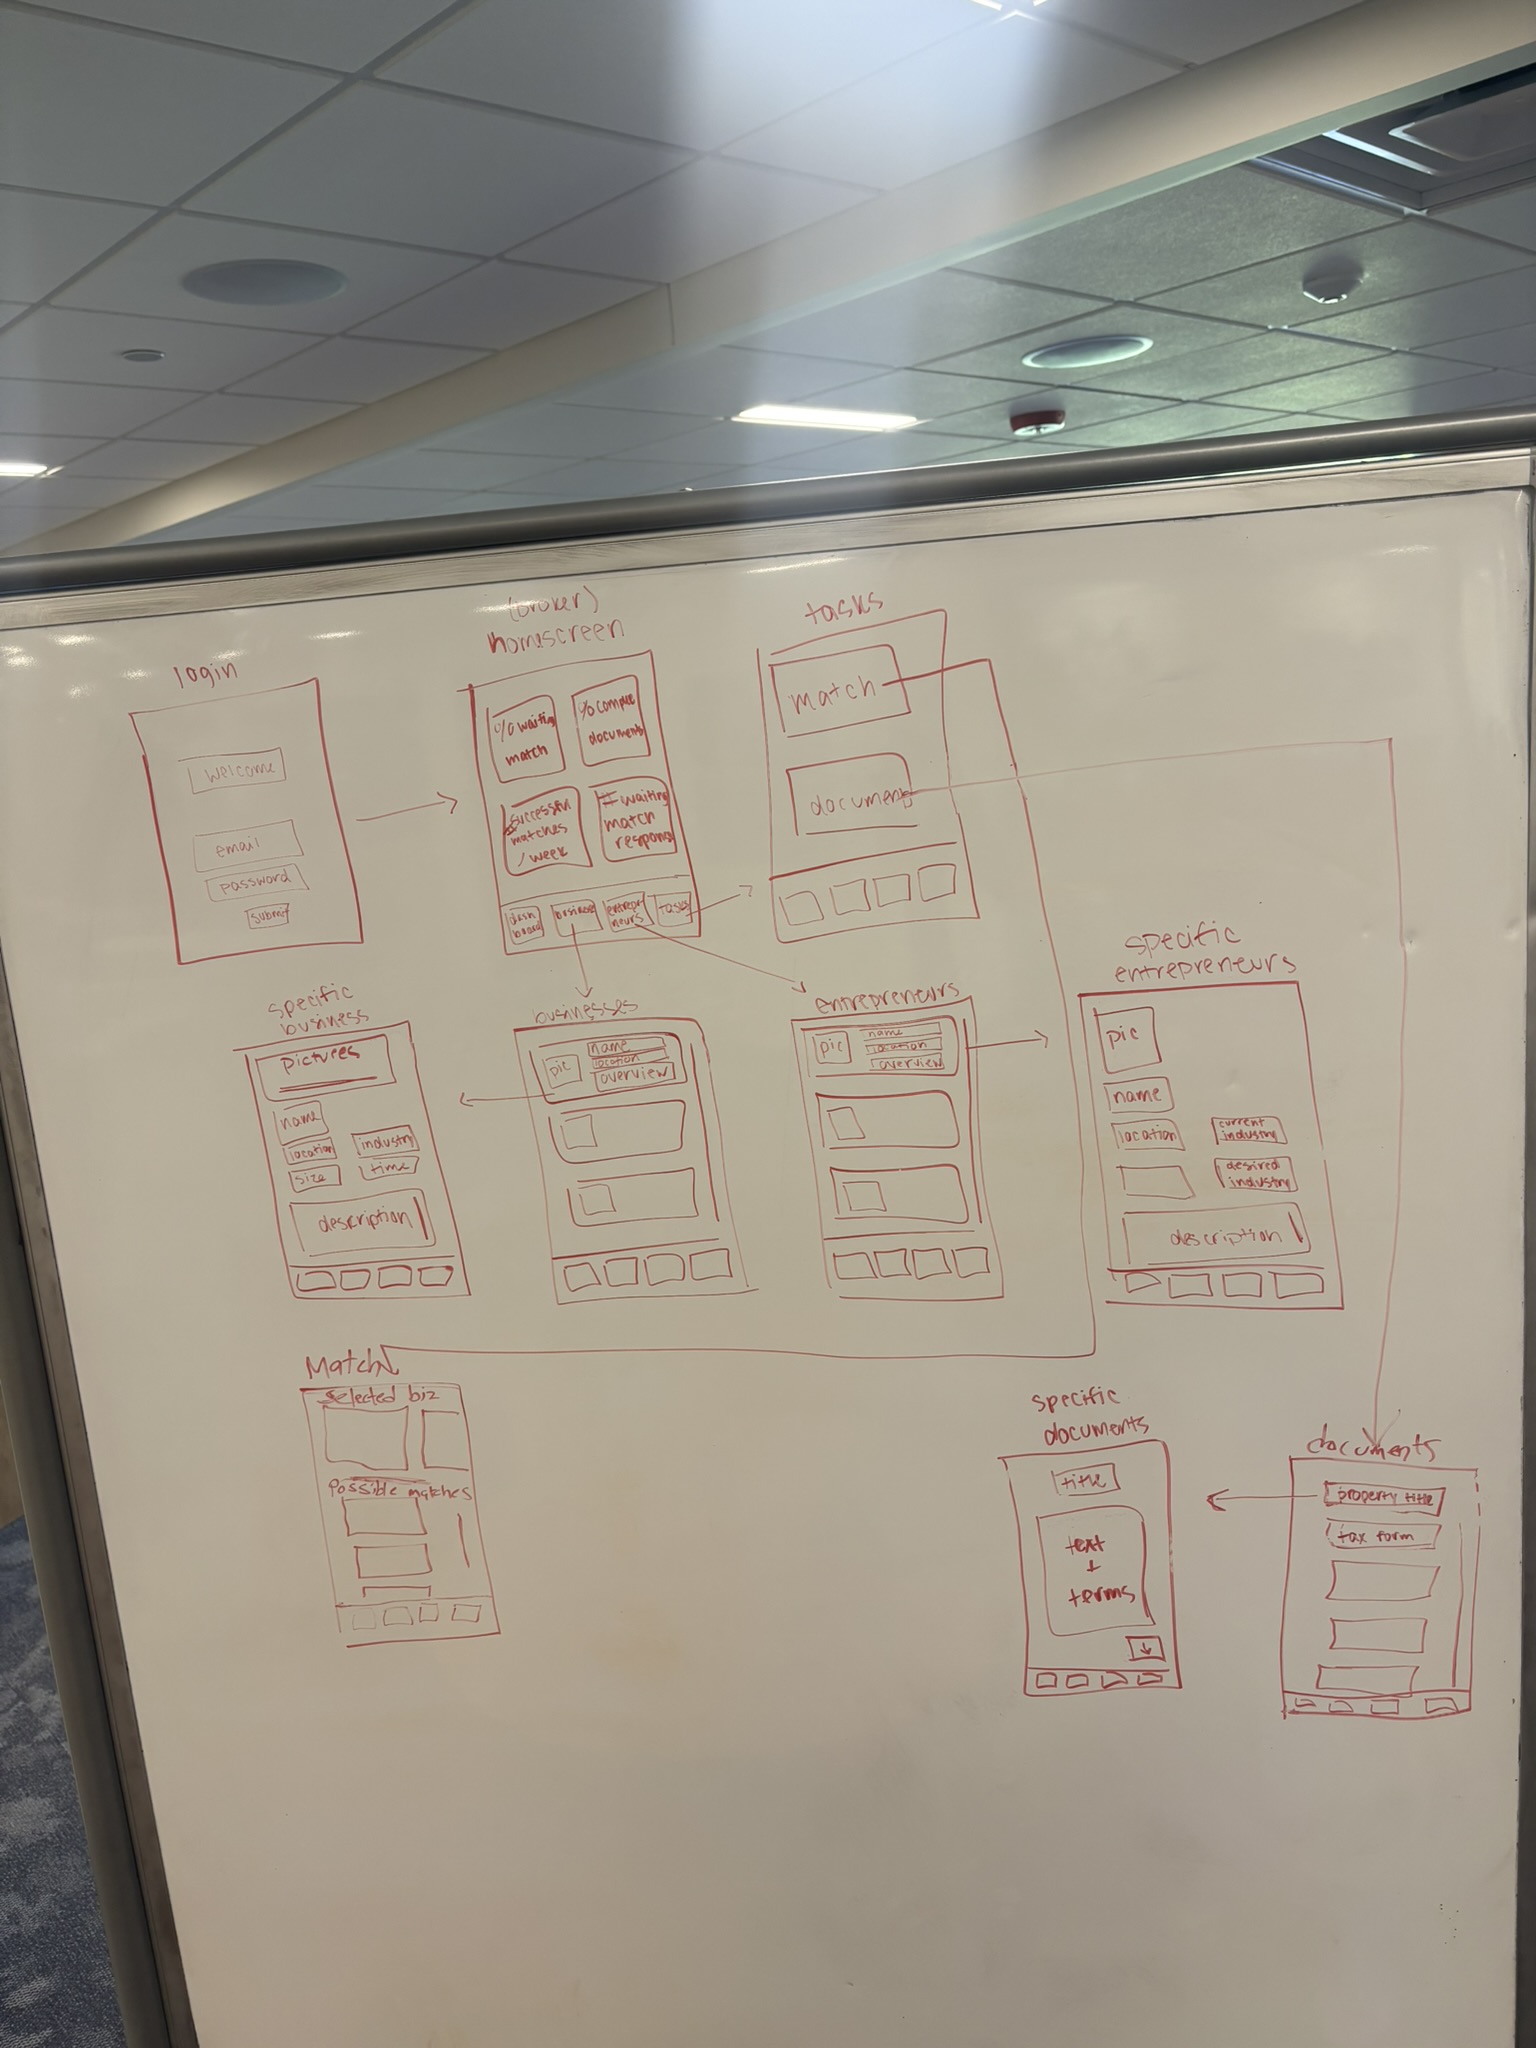 login
welcome
email
password
submit
(broker)
homescreen
% waiting
match
documents
successful
matches
/week
# waiting
match
response
dash
board
business
entrepre
neurs
tasks
tasks
match
document
specific
business
pictures
name
location
size
industry
time
description
businesses
pic
name
location
overview
entrepreneurs
pic
name
location
overview
specific
entrepreneurs
pic
name
location
current
industry
desired
industry
description
Match
selected biz
Possible matches
specific
documents
title
text
+
terms
documents
property title
tax form